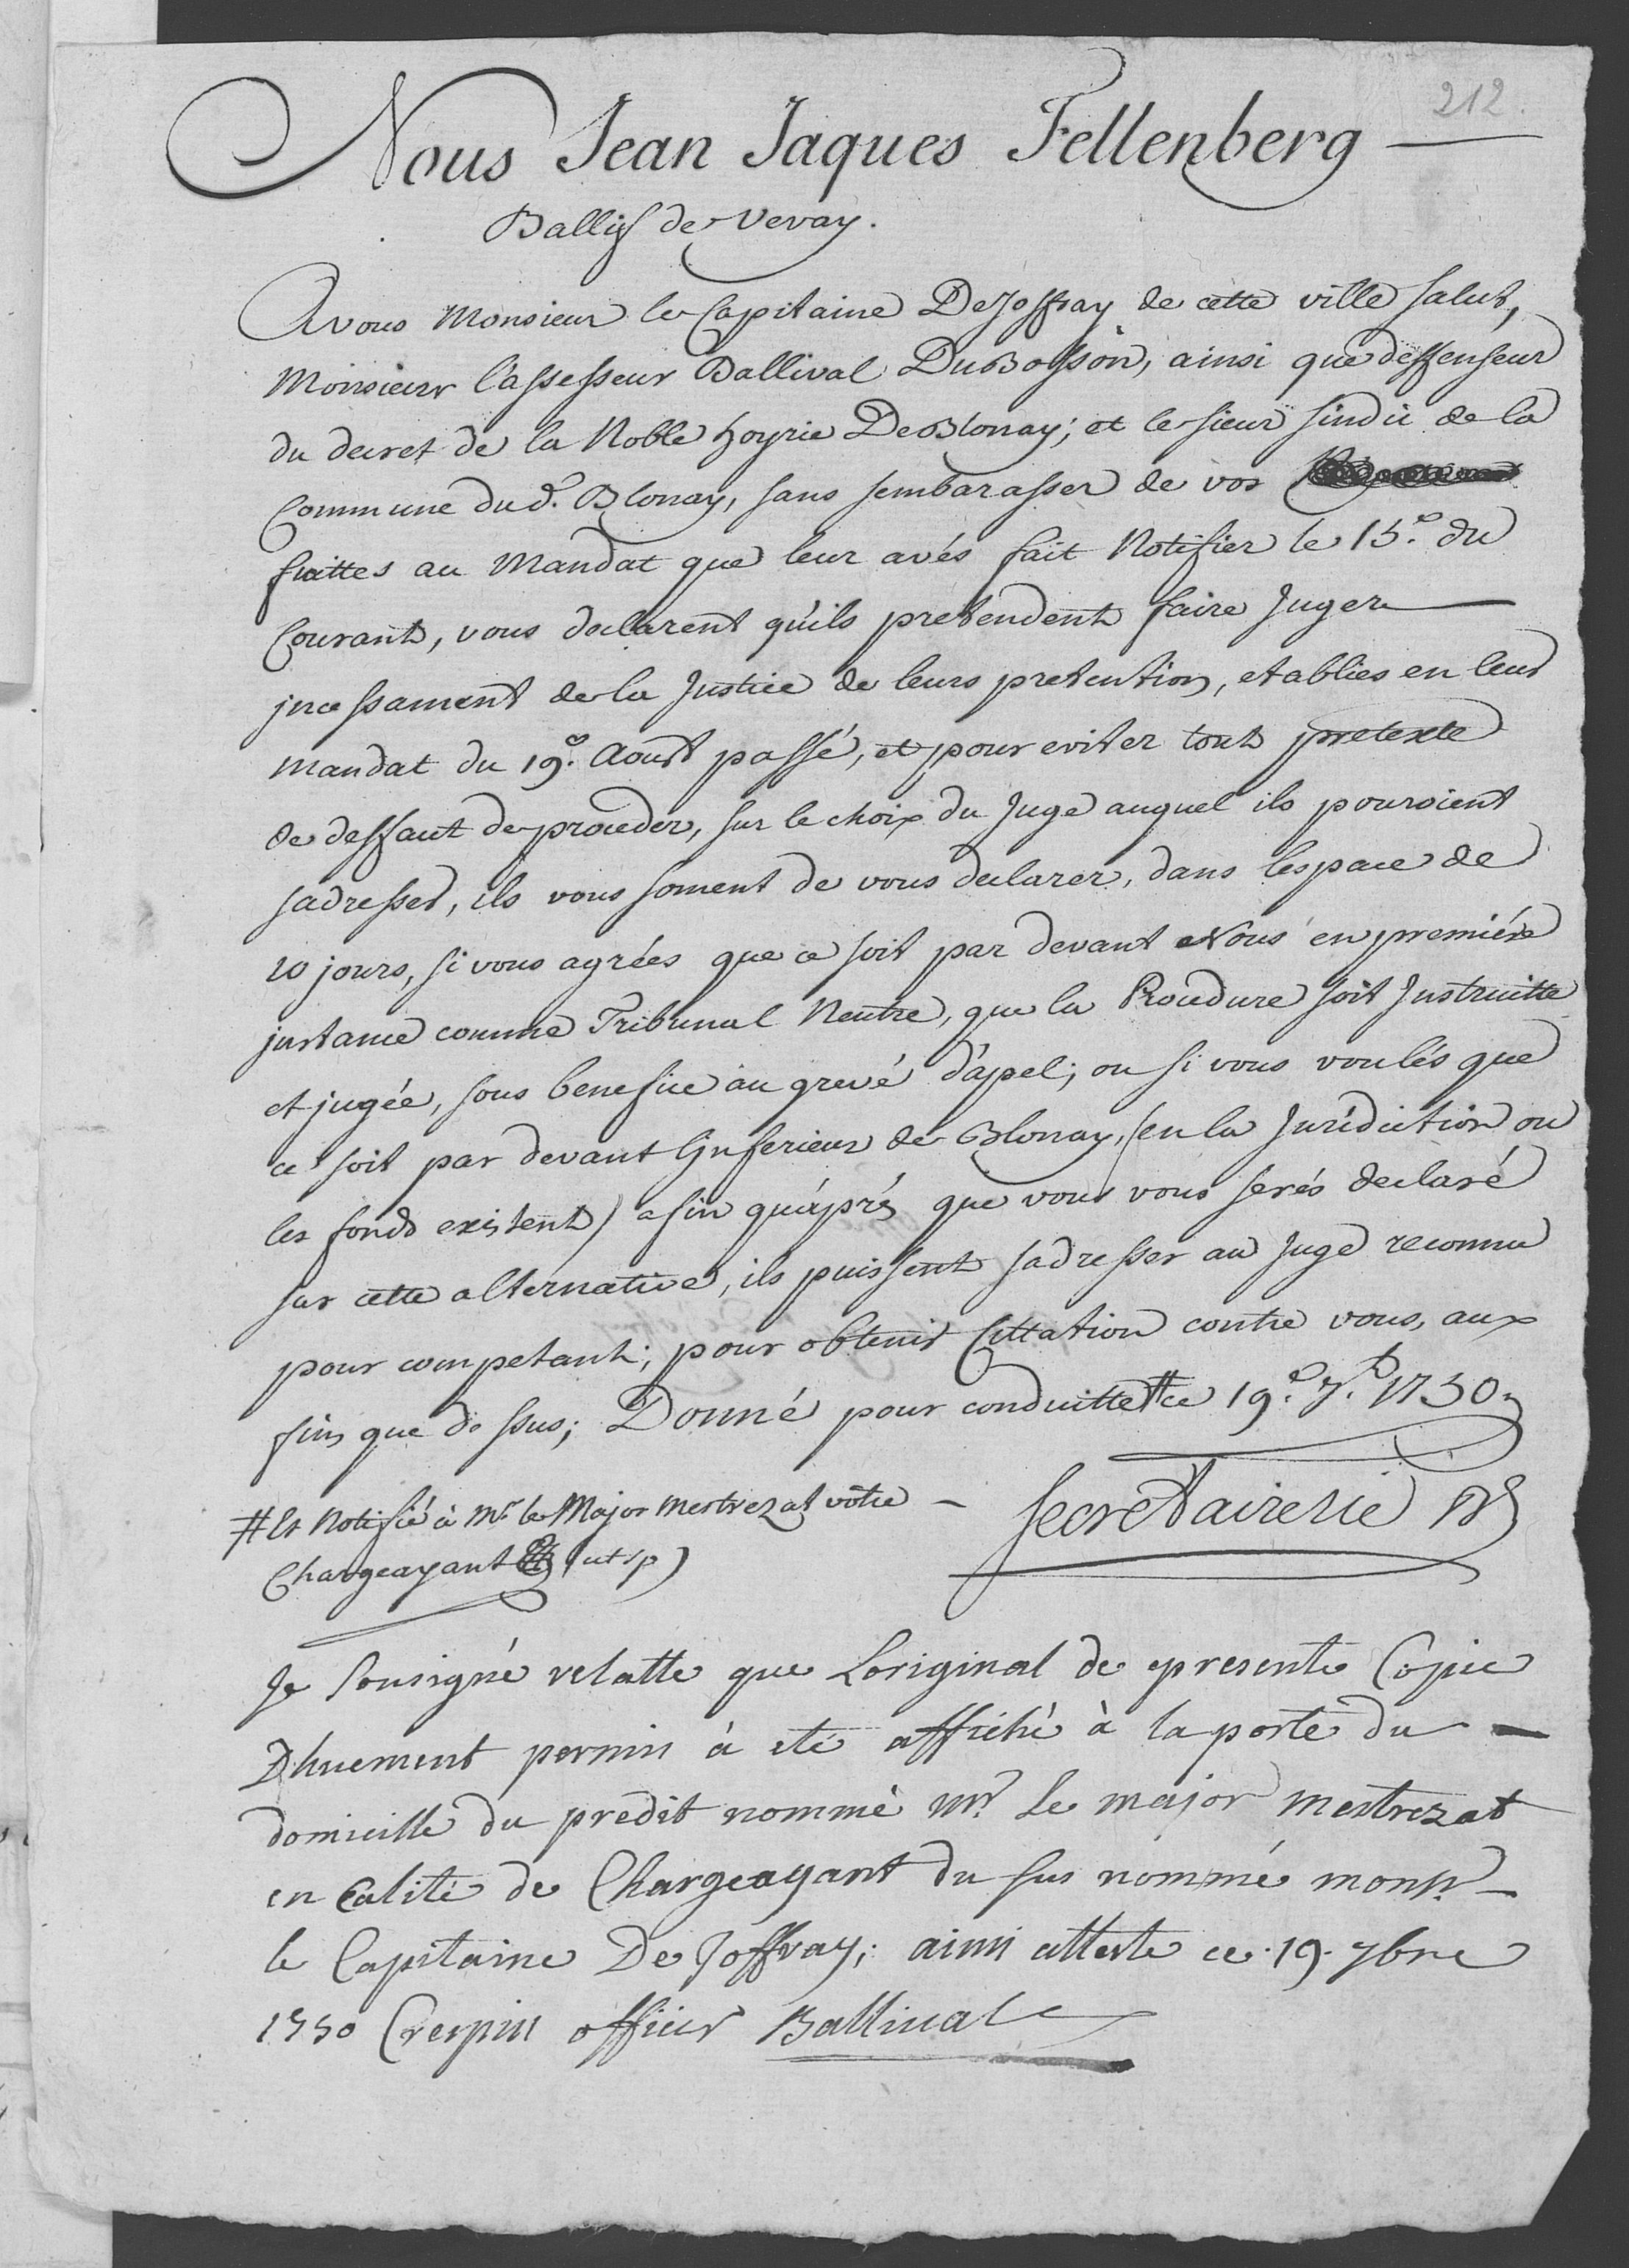 212.
Nous Jean Jaques Fellenberg
Ballif de Vevay.
A vous Monsieur le Capitaine DeJoffray de cette ville salut,
Monsieur l'assesseur Ballival DuBosson, ainsi que deffenseur
du decret de la Noble hoyrie DeBlonay; et le sieur sindic de la
Commune dud.t Blonay, sans sembarasser de vos
fuittes au Mandat que leur avés fait Notifier le 15.e du
Courant, vous declarent qu'ils pretendent faire Juger
jncessament de la Justice de leurs pretention, etablies en leur
mandat du 19.e Aoust passé, et pour eviter tout pretexte
de deffaut de proceder, sur le choix du Juge auquel ils pouroient
sadresser, ils vous soment de vous declarer, dans lespace de
10 jours, si vous agrées que ce soit par devant Nous en premiére
jnstance comme Tribunal Neutre, que la Procedure soit Jnstruitte
et jugée, sous benefice au grevé d'apel; ou si vous voulés que
ce soit par devant Ljnferieur de Blonay, (en la Juridiction ou
les fonds existent) afin qu'aprés que vous vous serés declaré
sur cette alternative, ils puissent sadresser au Juge reconnu
pour competant; pour obtenir Cittation contre vous, aux
fins que dessus; Donné pour conduitte # ce 19.e 7.b 1750.
# Et Notifié à Mr. le Major Mestrezat vôtre
Chargeayant (ut sp)
Secretairerie
Je sousigné relatte que Loriginal de presente Copie
Dhuement permis à eté affiché à la porte du
domicille du predit nommé mr. Le major mestrezat
en Calité de Chargeayant du sus nommé monsr.
le Capitaine De Joffray; ainsi atteste ce 19. 7bre
1750 Crespin officier Ballival